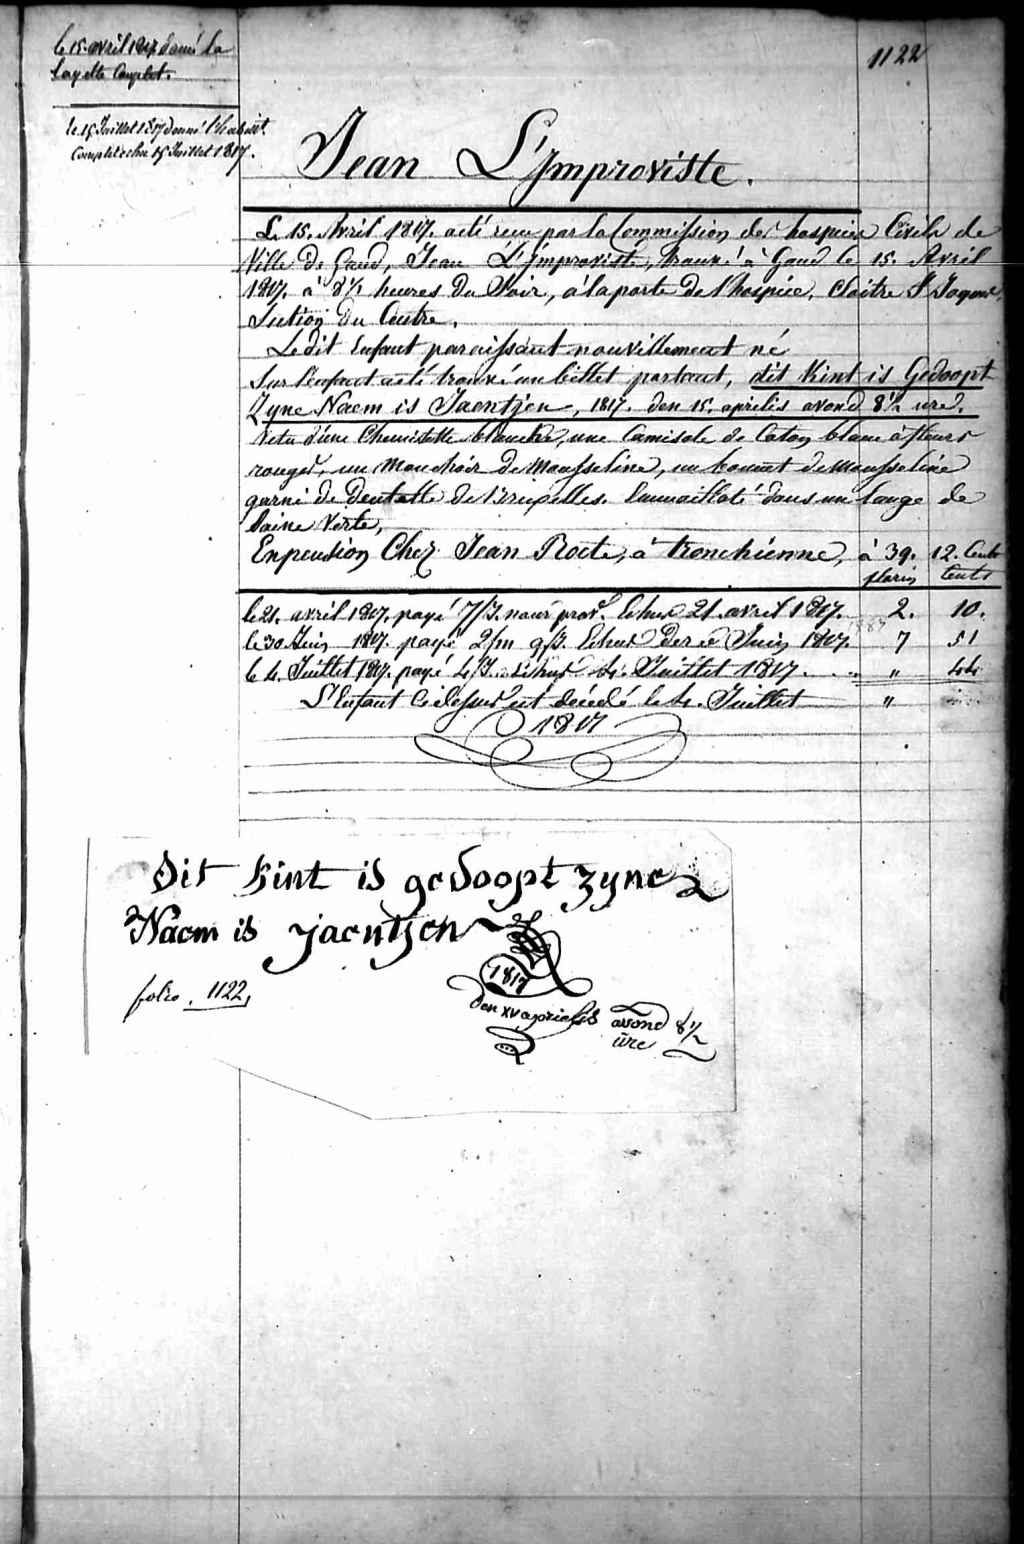 le 15 avril 1817 donné la
layette Complet.
1122
le 15 Juillet 1817 donné l'habillt.
Complet echu 15 Juillet 1817.
Jean L'Improviste.
Le 15. Avril 1817. a été reçu par la Commission des hospices Civils de
Ville de Gand, Jean L'Improviste, trouvé à Gand le 15. Avril
1817. à 8½ heures du Soir, à la porte de l'hospice, Cloitre St
Section du Centre.
Le dit Enfant paraissant nouvellement né
Sur l'enfant a été trouvé un billet portant, dit Kint is Gedoopt
Zyne Naem is Jaentjen, 1817. den 15. aprilis avond 8½ ure.
Vetu d'une Chemisette blanche, une Camisole de Coton blanc à fleurs
rouges, un Mouchoir de Mousseline, un bonnet de Mousseline
garni de Dentelle de Bruxelles. Emmailloté dans un lange de
laine Verte,
En pension Chez Jean Rocte, à tronchienne, à 39. 12. Cents
florin Cents
le 21. avril 1817. payé 7/J. nour prov. Echus 21 avril 1817. 2. 10.
le 30 Juin 1817. payé 2/m 9/J. Echus der de Juin 1817. 7 51
le 4. Juillet 1817. payé 4/J. Echus 4. Juillet 1817 . . . " 44
L'Enfant Ci dessus est décédé le 4. Juillet "
1817
Dit kint is gedoopt zyne
Naem is jaentjen
1817
folio. 1122,
den XV aprielis avond 8½
ure